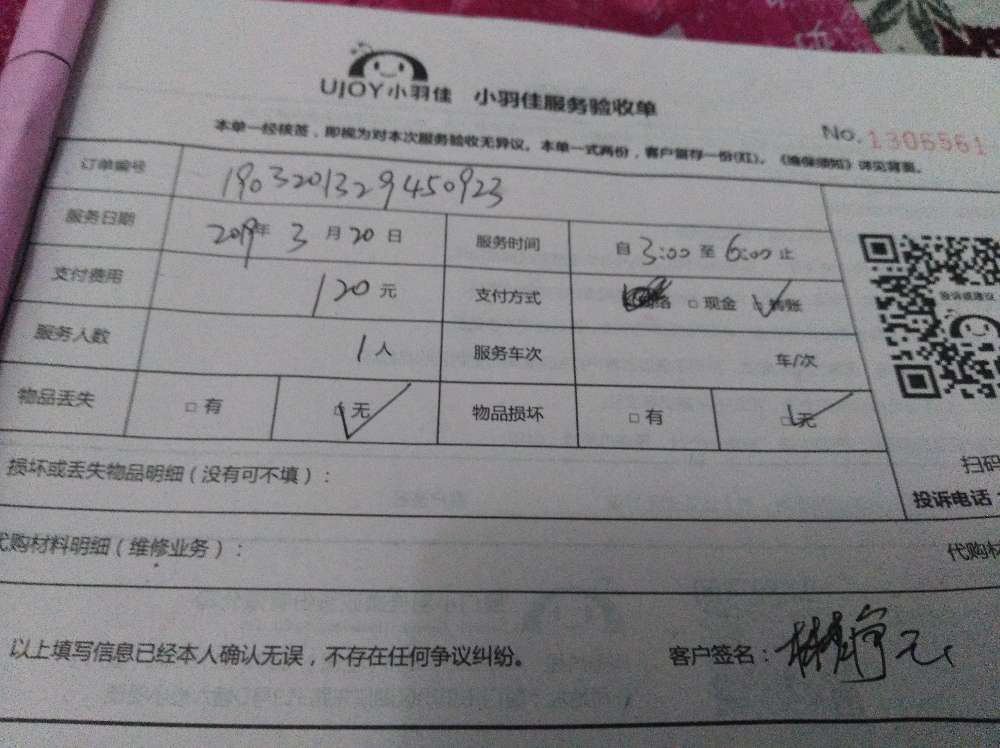 UJOY小羽佳 小羽佳服务验收单
No. 1306561
本单一经核签，即视为对本次服务验收无异议。本单一式两份，客户留存一份(红)。《维保须知》详见背面。
订单编号 1903201329450923
服务日期 2019年 3 月 20 日 服务时间 自 3:00 至 6:00 止
支付费用 120 元 支付方式 络 □ 现金 □ 转账
服务人数 1 人 服务车次 车/次
物品丢失 □ 有 □ 无 物品损坏 □ 有 □ 无
损坏或丢失物品明细（没有可不填）：
扫码
投诉电话：
代购材料明细（维修业务）：
代购材
以上填写信息已经本人确认无误，不存在任何争议纠纷。 客户签名：